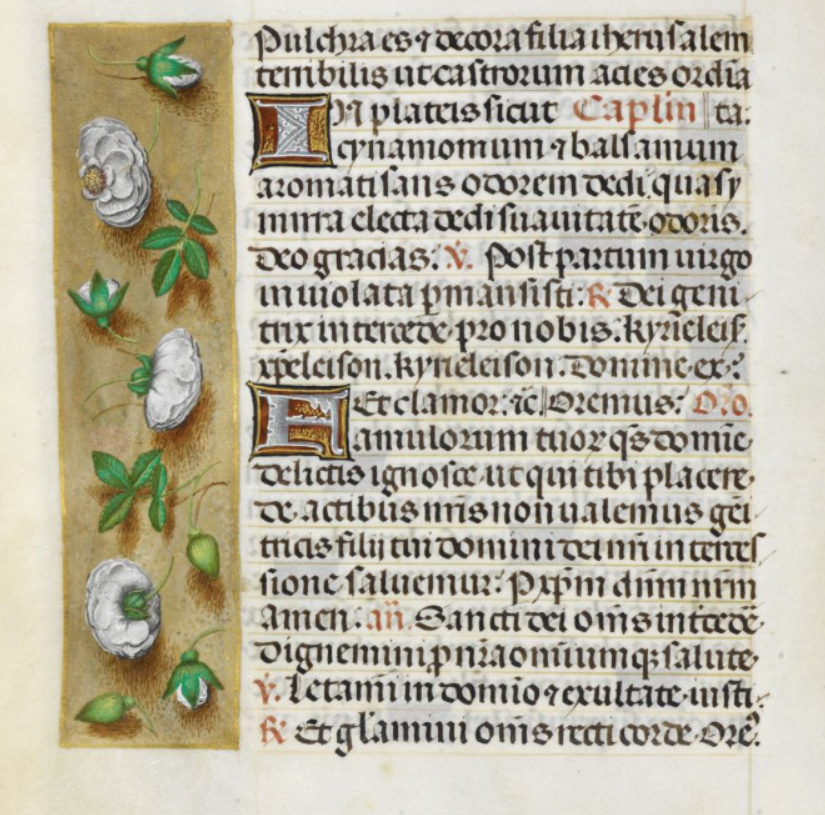 Pulchra es ⁊ decora filia iherusalem
terribilis ut castrorum acies ordīa
IN plateis sicut Caplm ta:
cynamomum ⁊ balsamum
aromatisans odorem dedi quasy
mirra electa dedi suauitatē odoris.
Deo gracias: v̇. Post partum uirgo
inuiolata ꝑmansisti: ℟ Dei geni
trix intercede pro nobis. kyrieleis.
xp̄eleison. kyrieleison. Domine ex:
Et clamor: ⁊c̄ Oremus: Or̄o.
Famulorum tuoꝝ qs̄ domīe
delictis ignosce ut qui tibi placere
de actibus nr̄is non ualemus geī
tricis filij tui domini dei nr̄i interces
sione saluemur: P xp̄m dn̄m nr̄m
amen. an̄. Sancti dei om̄s intcedē
dignemini ꝓ nr̄a omniumqꝫ salute
v̇. Letami in domio ⁊ exultate iusti:
℟ Et gl̄amini om̄s recti corde. Ore᷒.